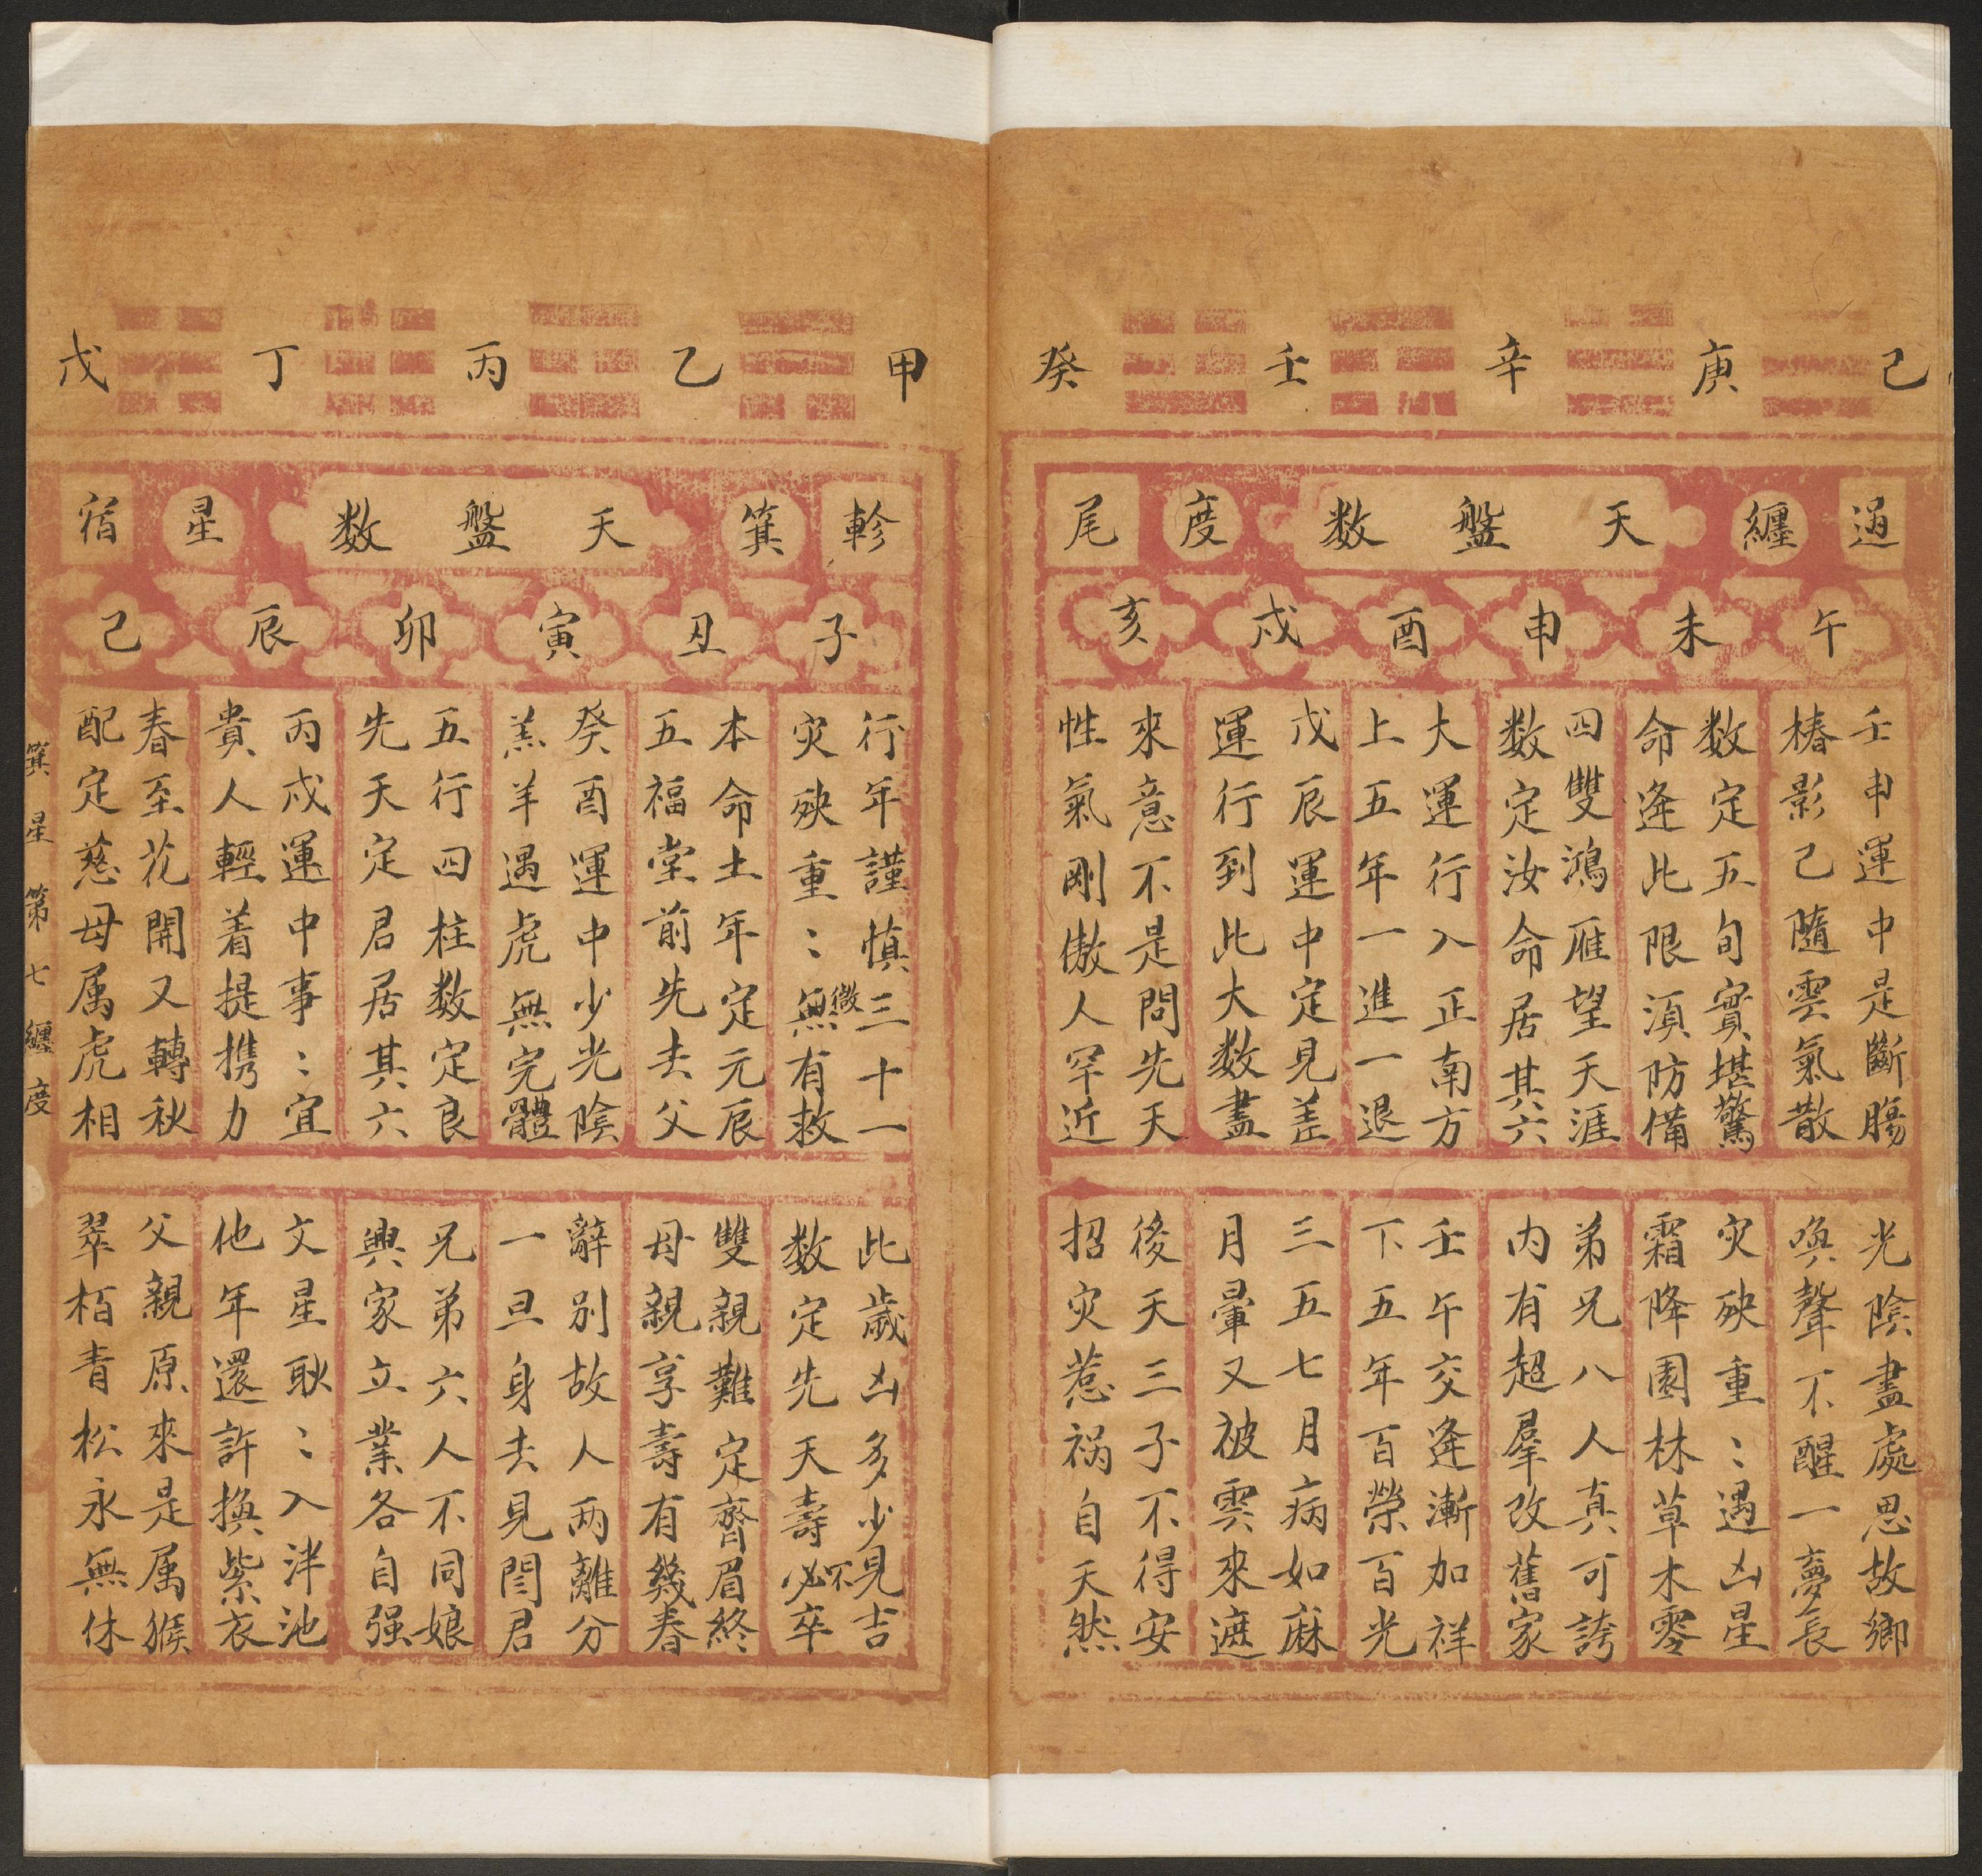 己　庚　辛　壬　癸
過　纏　天盤数　度　尾
午　未　申　酉　戌　亥
壬申運中是斷腸
椿影已隨雲氣散
光陰盡處思故鄉
喚聲不醒一夢長
数定五旬實堪驚
命逢此限湏防備
灾殃重〻遇凶星
霜降園林草木零
四雙鴻雁望天涯
数定汝命居其六
弟兄八人真可誇
内有超羣改舊家
大運行入正南方
上五年一進一退
壬午交逢漸加祥
下五年百榮百光
戊辰運中定見差
運行到此大数盡
三五七月病如麻
月暈又被雲來遮
來意不是問先天
性氣剛傲人罕近
後天三子不得安
招灾惹祸自天然
甲　乙　丙　丁　戊
軫　箕　天盤数　星　宿
子　丑　寅　卯　辰　巳
行年謹慎三十一
灾殃重〻無微有救
此歲凶多少見吉
数定先天壽必不卒
本命土年定元辰
五福堂前先去父
雙親難定齊眉終
母親享壽有幾春
癸酉運中少光陰
羔羊遇虎無完體
辭別故人两離分
一旦身去見閻君
五行四柱数定良
先天定君居其六
兄弟六人不同娘
興家立業各自强
丙戌運中事〻宜
貴人輕着提携力
文星耿〻入泮池
他年還許換紫衣
春至花開又轉秋
配定慈母属虎相
父親原來是属猴
翠栢青松永無休
箕星第七纏度